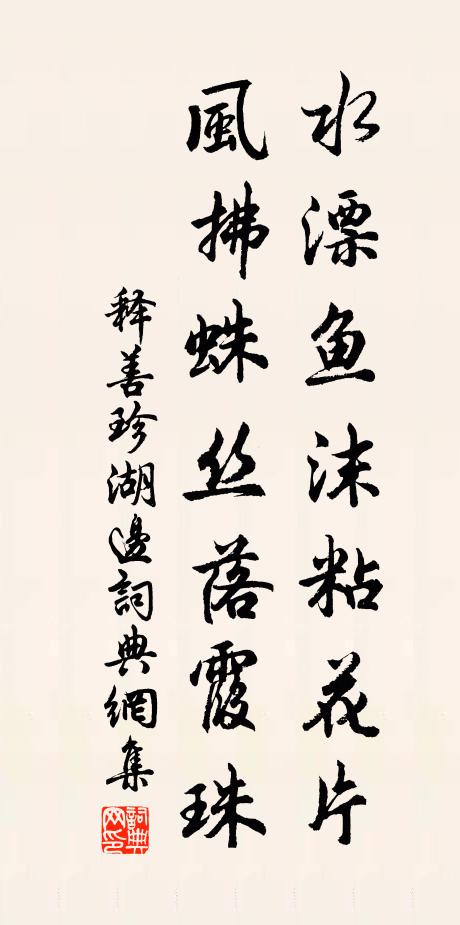 水漂鱼沫粘花片
風拂蛛丝落霞珠
释善珍湖邊詞典網集
詞典网印